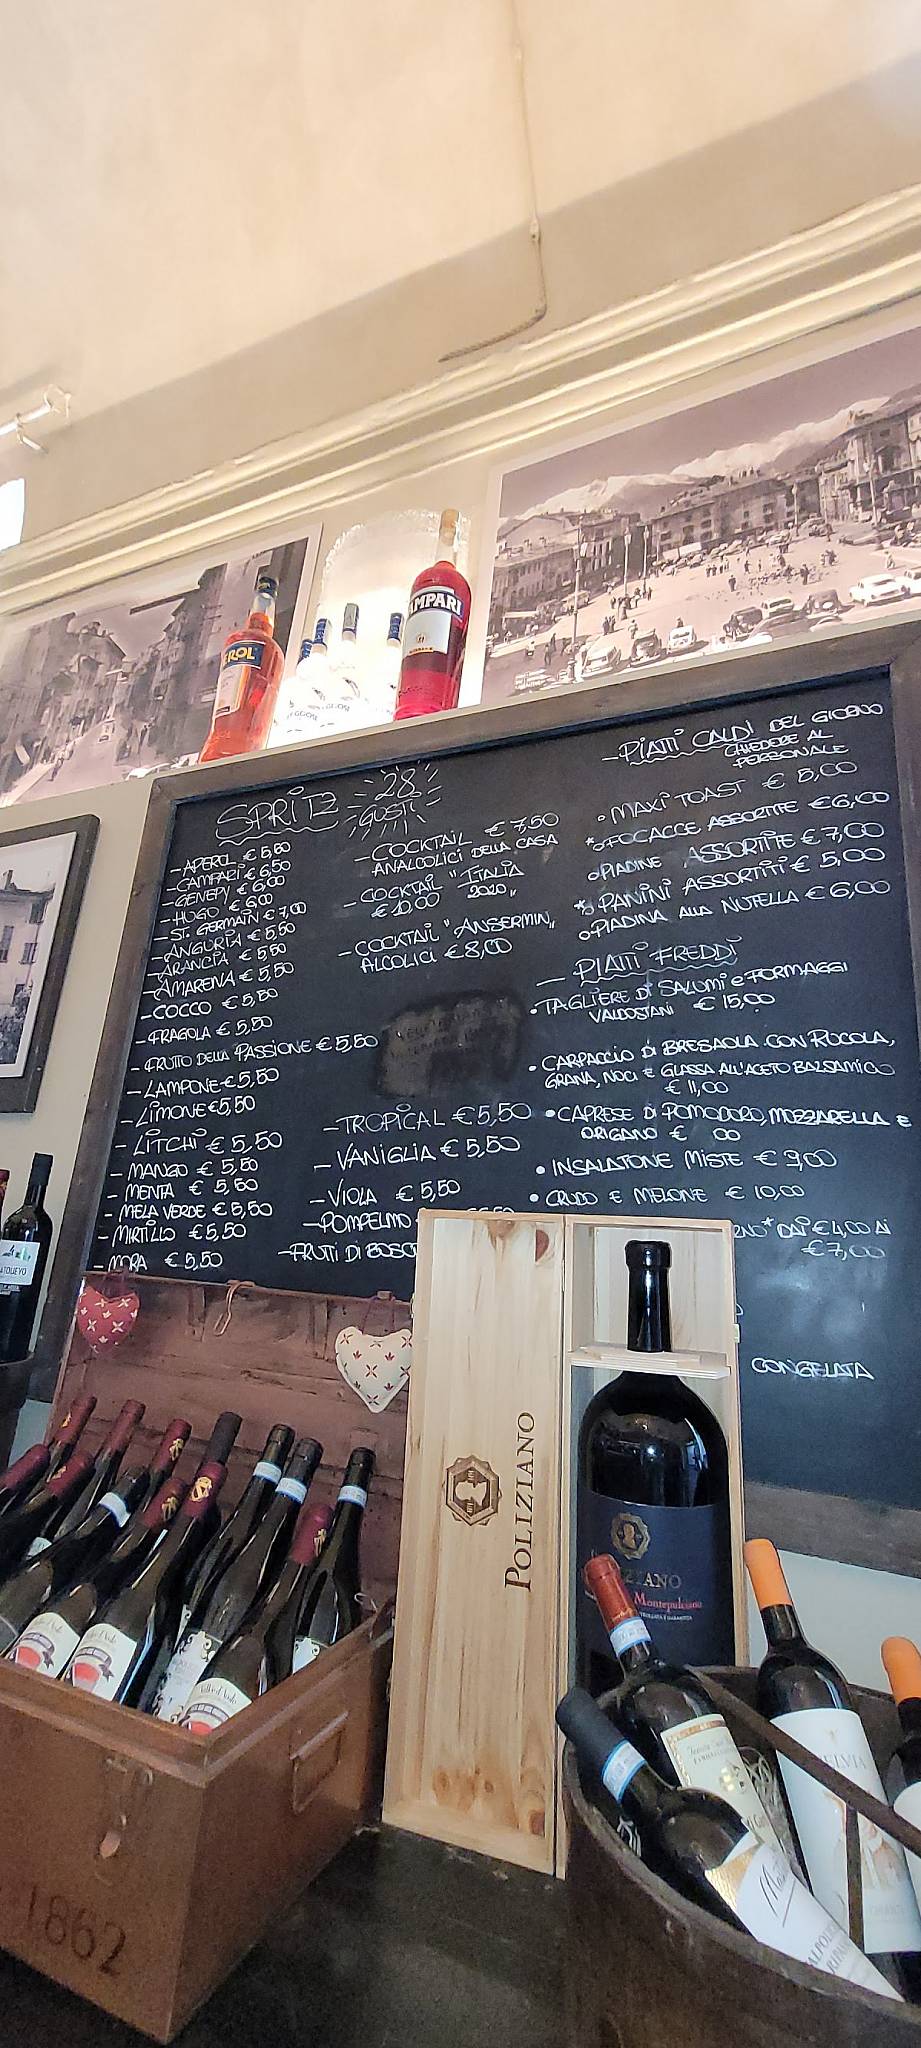 CAMPARI
EROL
SPRITZ
28
GUSTI
- APEROL € 5,50
- CAMPARI € 6,50
- GENEPY € 6,00
- HUGO € 6,00
- ST. GERMAIN € 7,00
- ANGURIA € 5,50
- ARANCIA € 5,50
- AMARENA € 5,50
- COCCO € 5,50
- FRAGOLA € 5,50
- FRUTTO DELLA PASSIONE € 5,50
- LAMPONE € 5,50
- LIMONE € 5,50
- LITCHI € 5,50
- MANGO € 5,50
- MENTA € 5,50
- MELA VERDE € 5,50
- MIRTILLO € 5,50
- MORA € 5,50
- COCKTAIL € 7,50
ANALCOLICI DELLA CASA
- COCKTAIL "ITALIA
€ 10,00 2020"
- COCKTAIL "ANSERMIN"
ALCOLICI € 8,00
- TROPICAL € 5,50
- VANIGLIA € 5,50
- VIOLA € 5,50
- POMPELMO
- FRUTTI DI BOSC
- PIATTI CALDI DEL GIORNO
CHIEDERE AL
PERSONALE
• MAXI TOAST € 5,00
* FOCACCE ASSORTITE € 6,00
PIADINE ASSORTITE € 7,00
* PANINI ASSORTITI € 5,00
PIADINA ALLA NUTELLA € 6,00
- PIATTI FREDDI
• TAGLIERE DI SALUMI e FORMAGGI
VALDOSTANI € 15,00
• CARPACCIO DI BRESAOLA CON RUCOLA,
GRANA, NOCI E GLASSA ALL'ACETO BALSAMICO
€ 11,00
• CAPRESE DI POMODORO, MOZZARELLA E
ORIGANO € 00
• INSALATONE MISTE € 9,00
• CRUDO E MELONE € 10,00
RNO* DAI € 4,00 AI
€ 7,00
CONGELATA
POLIZIANO
ZIANO
Montepulciano
1862